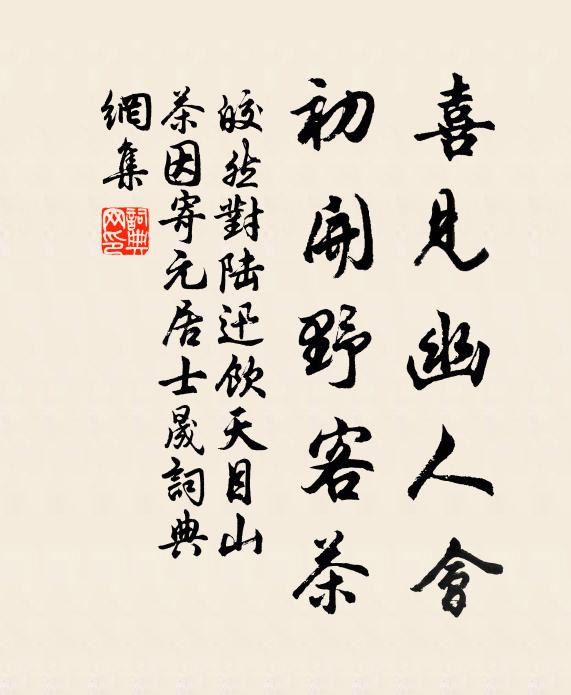 喜見幽人會
初開野客茶
皎然對陆迅飲天目山
茶因寄元居士晟詞典
網集
詞典网印